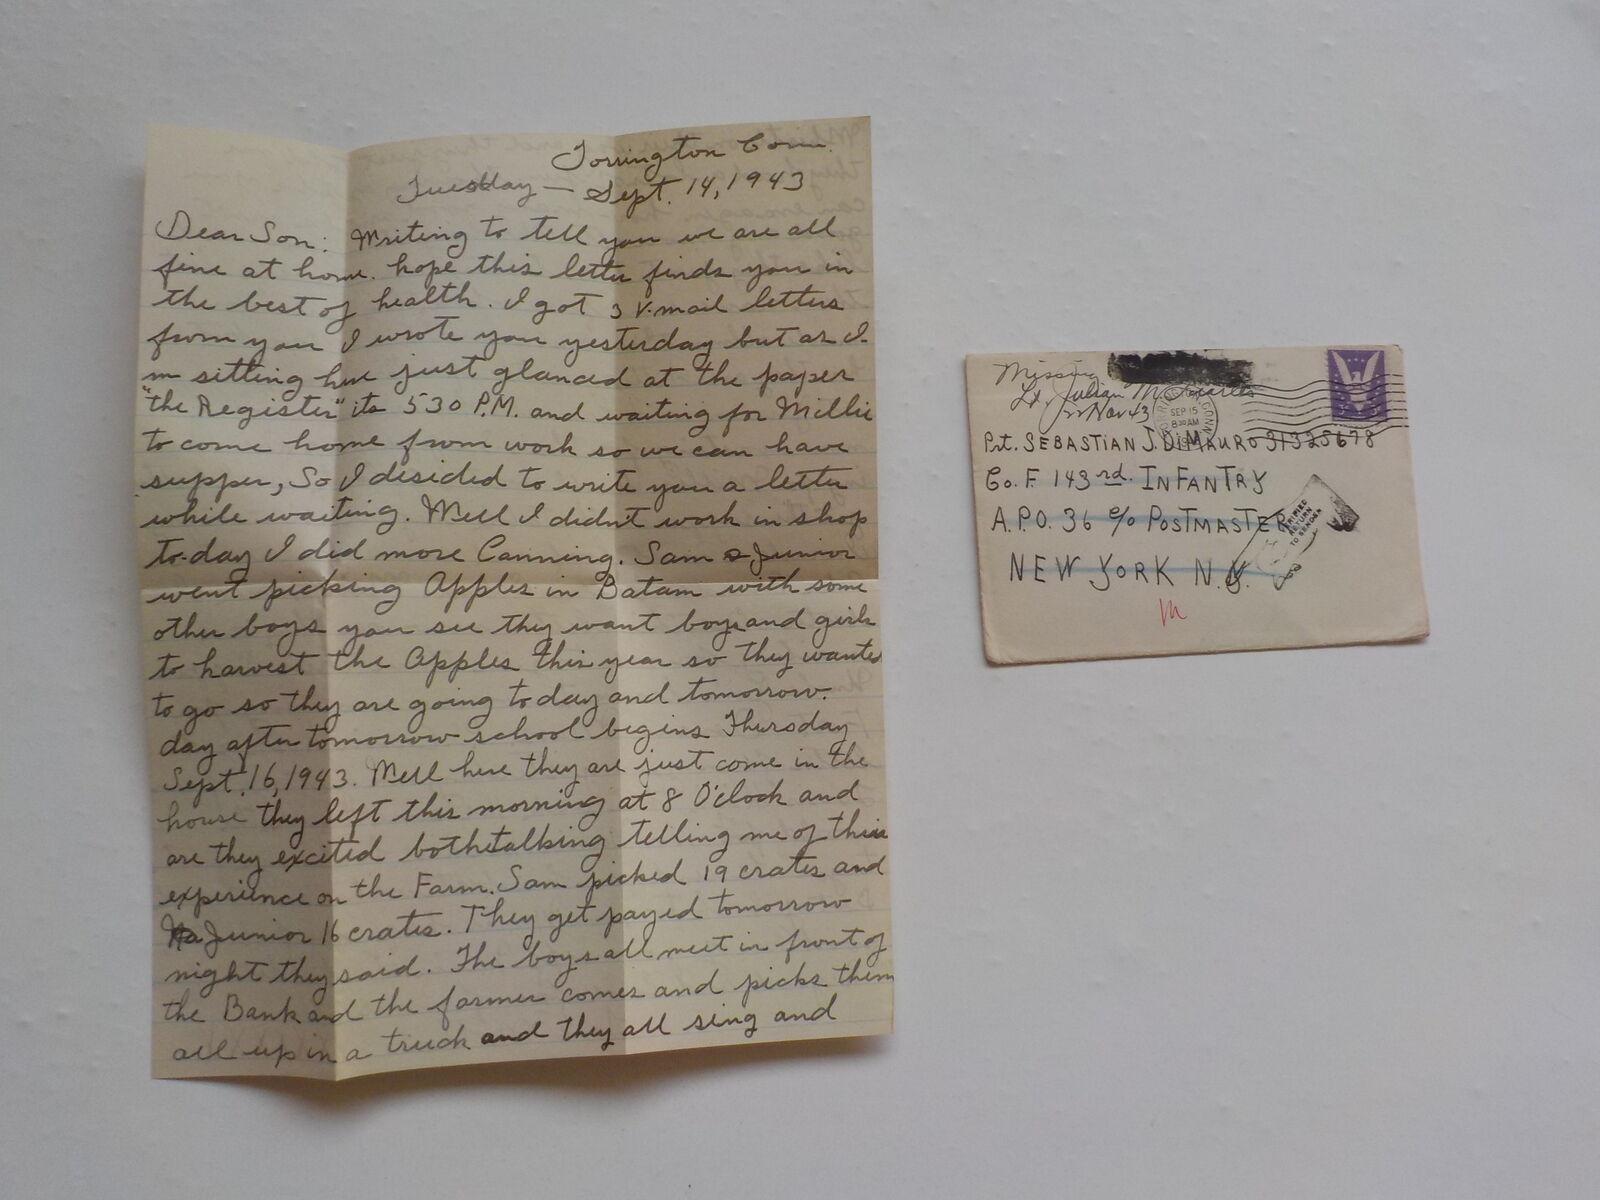 Torrington Conn.
Tuesday — Sept. 14, 1943
Dear Son: Writing to tell you we are all
fine at home. hope this letter finds you in
the best of health. I got 3 V-mail letters
from you I wrote you yesterday but as I-
m sitting here just glanced at the paper
"the Register" its 530 P.M. and waiting for Millie
to come home from work so we can have
supper, So I desided to write you a letter
while waiting. Well I didn't work in shop
to-day I did more Canning. Sam & Junior
went picking Apples in Batam with some
other boys you see they want boys and girls
to harvest the Apples this year so they wanted
to go so they are going today and tomorrow.
day after tomorrow school begins Thursday
Sept. 16, 1943. Well here they are just come in the
house they left this morning at 8 O'clock and
are they excited both talking telling me of their
experience on the Farm. Sam picked 19 crates and
Junior 16 crates. They get payed tomorrow
night they said. The boys all meet in front of
the Bank and the farmer comes and picks them
all up in a truck and they all sing and
Missing
Lt. Julian M.
22 Nov 43
CONN.
SEP 15
8 30 AM
Pvt. SEBASTIAN J. DiMAURO 31325678
Co. F. 143rd. INFANTRY
A.P.O. 36 c/o POSTMASTER
NEW YORK N.Y.
VERIFIED
RETURN
TO SENDER
M